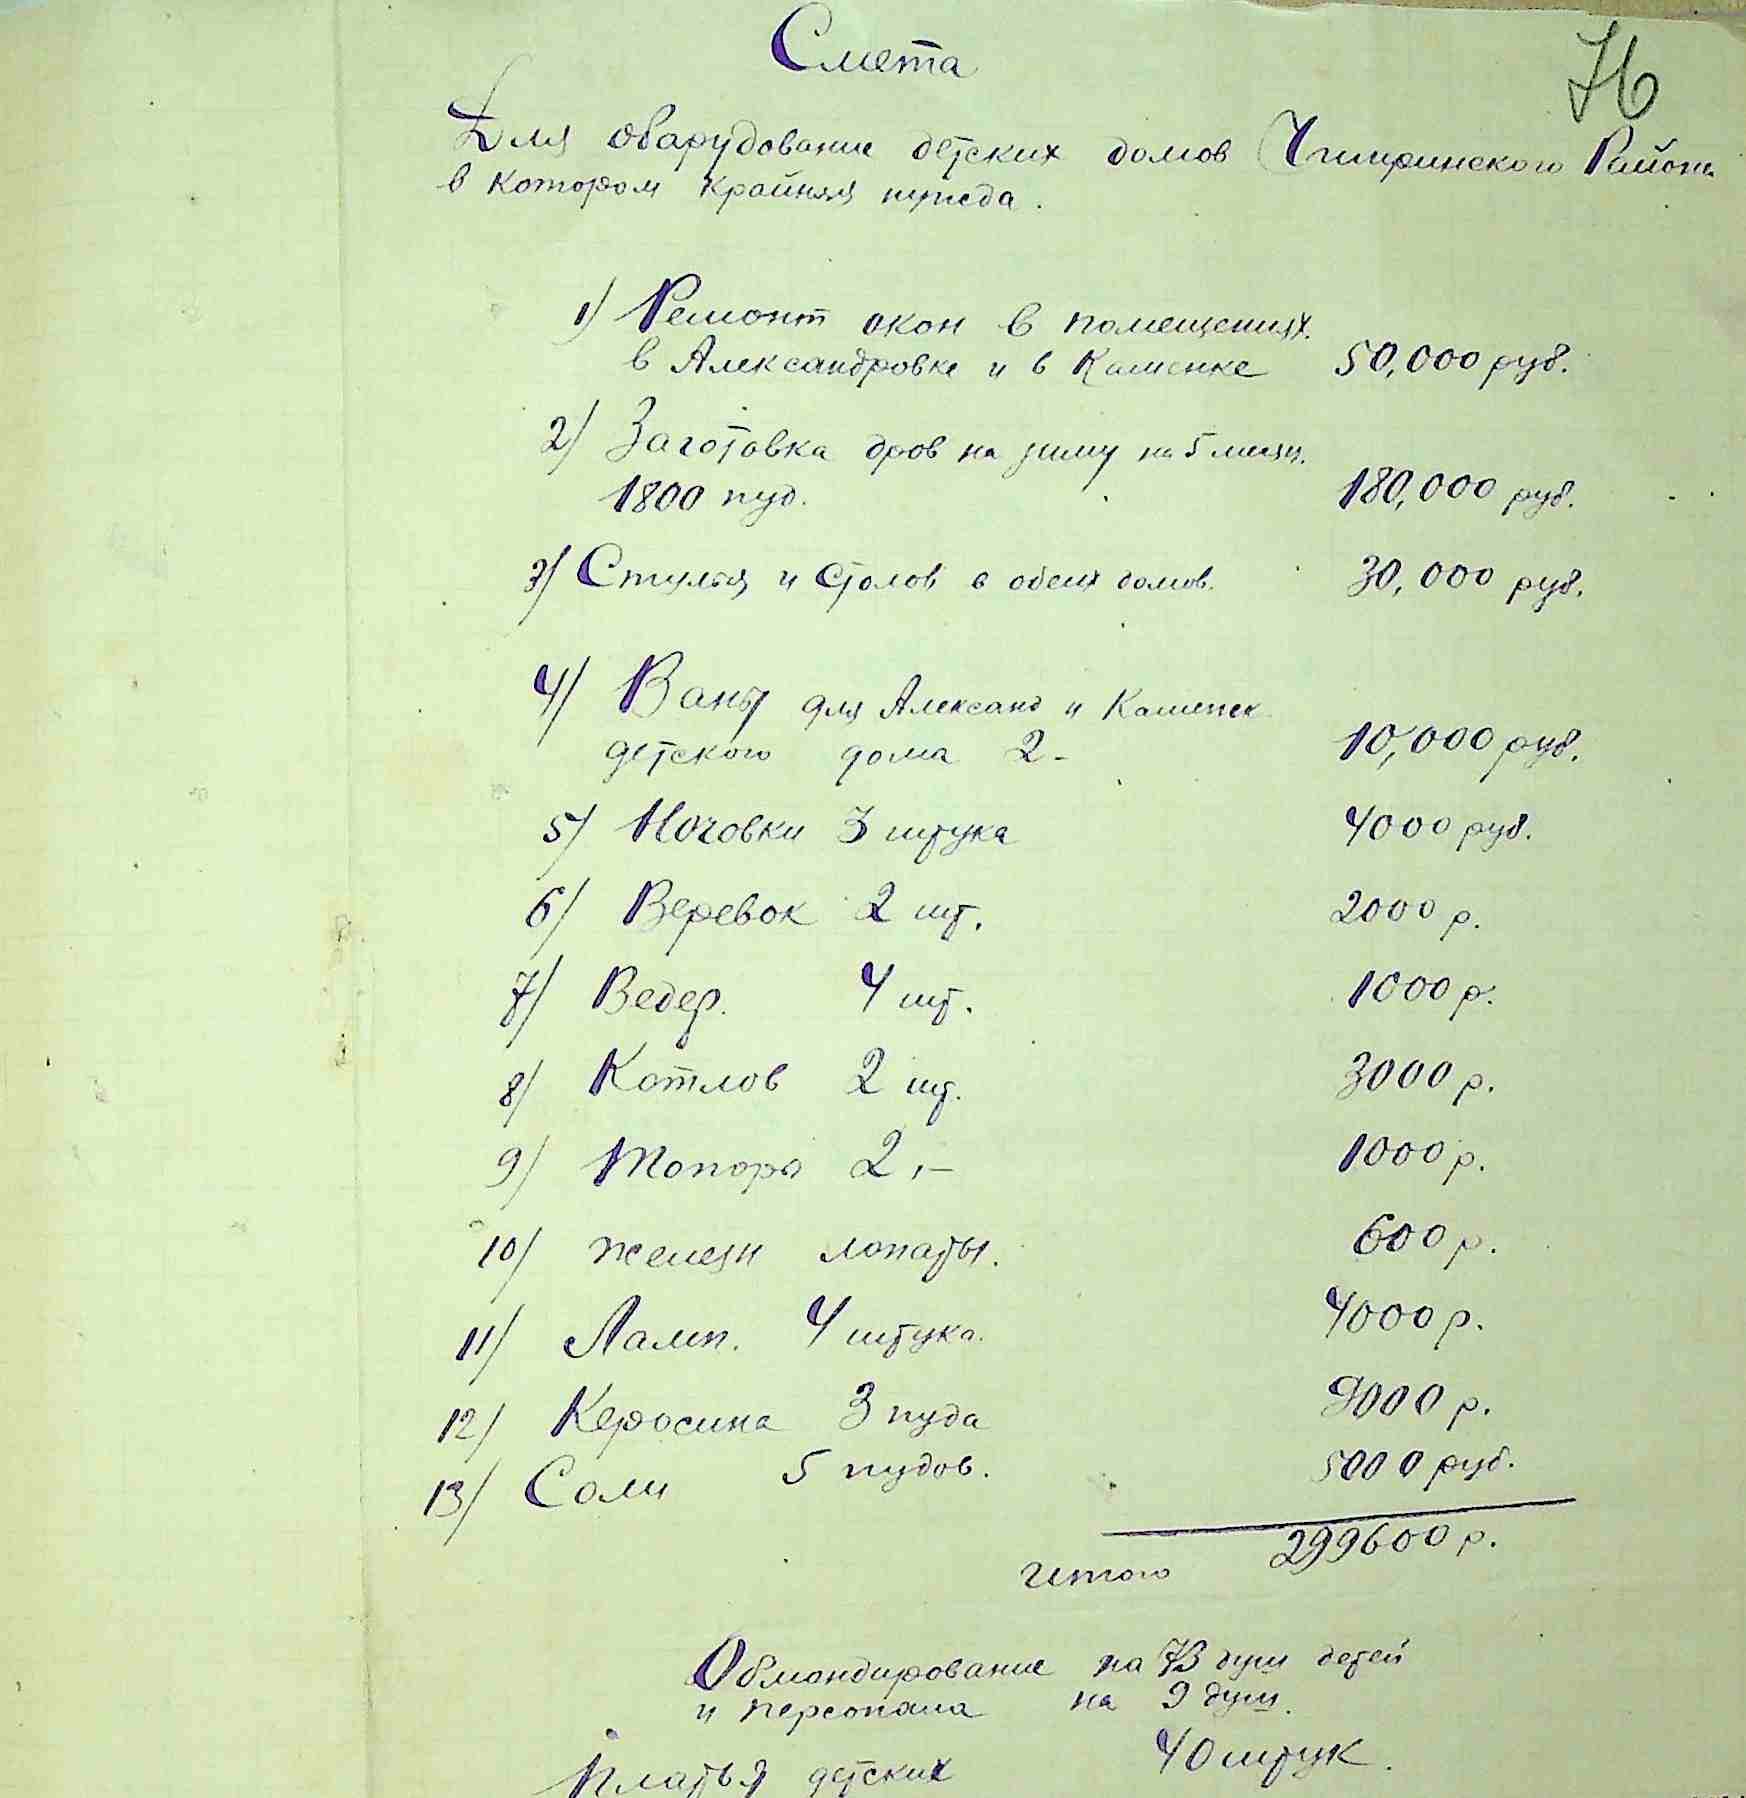 Смета
76
Для обарудование детских домов Чигиринского Района
в котором крайняя нужда.
1) Ремонт окон в помещениях.
в Александровке и в Каменке 50,000 руб.
2) Заготовка дров на зиму на 5 месяц.
1800 пуд. 180,000 руб.
3) Стулья и Столов в обеих домов. 30,000 руб.
4) Ваны для Александ и Каменск
детского дома 2- 10,000 руб.
5) Ночовки 3 штука 4000 руб.
6) Веревок 2 шт. 2000 р.
7) Ведер. 4 шт. 1000 р.
8) Котлов 2 шт. 3000 р.
9) Топора 2,- 1000 р.
10) железн лопаты. 600 р.
11) Ламп. 4 штука. 4000 р.
12) Керосина 3 пуда 9000 р.
13) Соли 5 пудов. 5000 руб.
Итого 299600 р.
Обмондирование на 73 душ детей
и персонала на 9 душ.
Платья детских 40 штук.